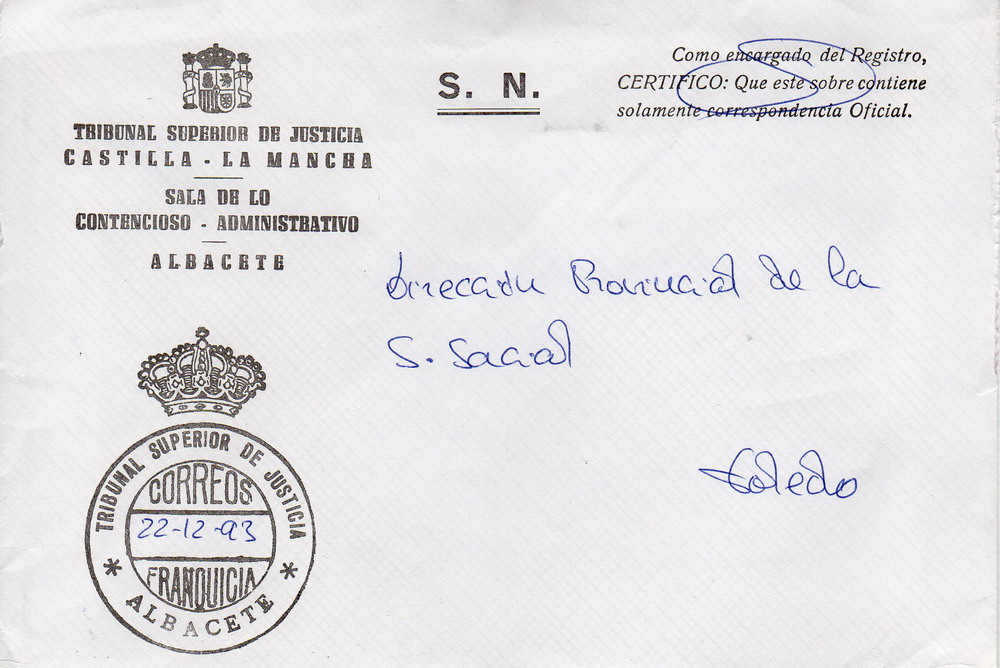 TRIBUNAL SUPERIOR DE JUSTICIA
CASTILLA - LA MANCHA
SALA DE LO
CONTENCIOSO - ADMINISTRATIVO
ALBACETE
S. N.
Como encargado del Registro,
CERTIFICO: Que este sobre contiene
solamente correspondencia Oficial.
Dirección Provincial de la
S. Social
Toledo
TRIBUNAL SUPERIOR DE JUSTICIA
CORREOS
22-12-93
FRANQUICIA
* ALBACETE *